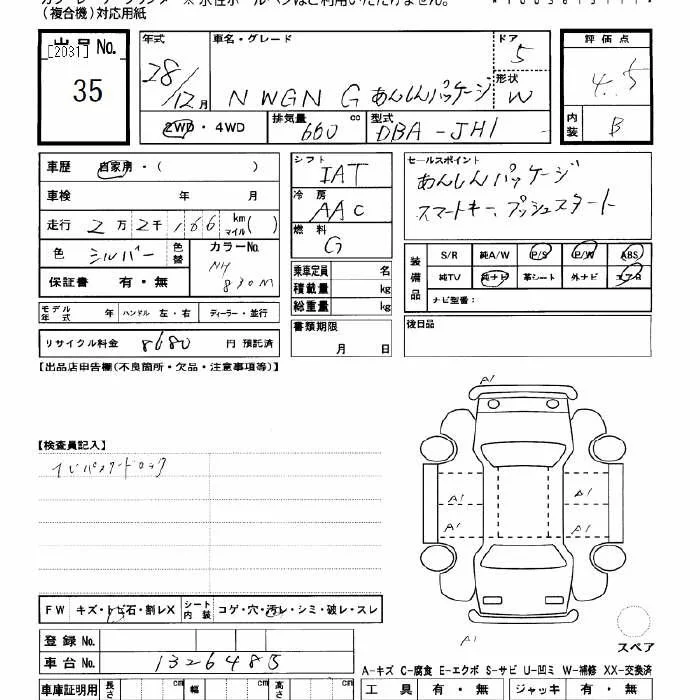 (複合機)対応用紙
出品No.
[2031]
35
年式
28/12月
車名・グレード
N WGN G あんしんパッケージ
ドア
5
形状
W
評価点
4.5
内装
B
2WD・4WD
排気量 660 cc
型式 DBA-JH1
車歴 自家用・( )
車検 年 月
走行 2万2千166 km マイル( )
色 シルバー 色替
カラーNo.
NH
830M
保証書 有・無
モデル年式 年 ハンドル 左・右 ディーラー・並行
リサイクル料金 8680 円 預託済
シフト
IAT
冷房
AAC
燃料
G
乗車定員 名
積載量 kg
総重量 kg
書類期限
月 日
セールスポイント
あんしんパッケージ
スマートキー、プッシュスタート
装備品
S/R 純A/W P/S P/W ABS
純TV 純ナビ 革シート 外ナビ エアB
ナビ型番:
後日品
【出品店申告欄(不良箇所・欠品・注意事項等)】
【検査員記入】
ナビパスワードロック
A1
A1
A1
A1
A1
A1
スペア
FW キズ・トビ石・割レX シート内装 コゲ・穴・汚レ・シミ・破レ・スレ
登録No.
車台No. 1326485
A-キズ C-腐食 E-エクボ S-サビ U-凹ミ W-補修 XX-交換済
車庫証明用 長さ cm 幅 cm 高さ cm
工具 有・無 ジャッキ 有・無